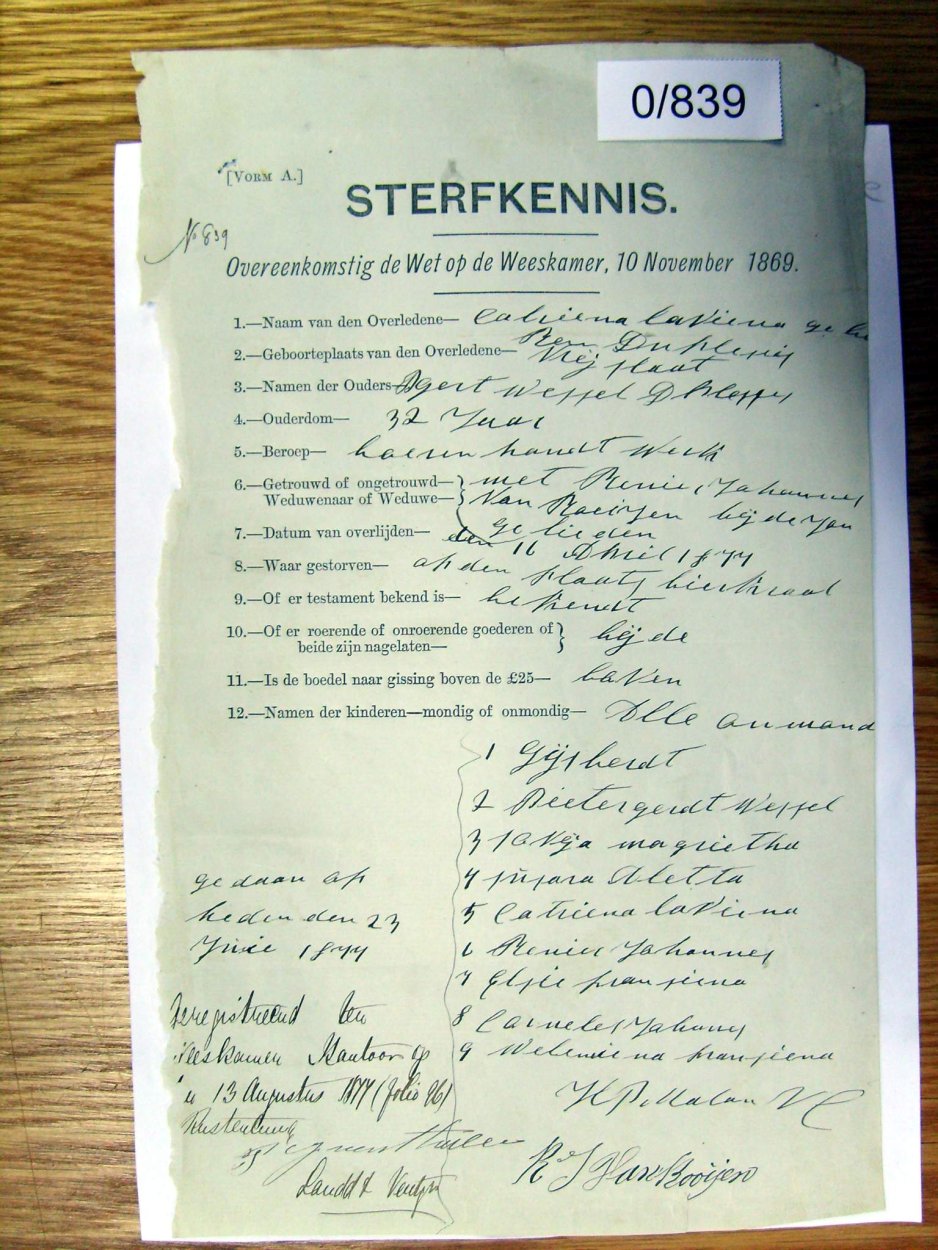 0/839
[VORM A.]
STERFKENNIS.
No 839
Overeenkomstig de Wet op de Weeskamer, 10 November 1869.
1.—Naam van den Overledene— Catriena laviena ge
2.—Geboorteplaats van den Overledene— Vrij plaat
3.—Namen der Ouders— gert Wessel
4.—Ouderdom— 32 Jaar
5.—Beroep— boeren handt Werk
6.—Getrouwd of ongetrouwd— met Renier Johannes
Weduwenaar of Weduwe— Van Rooijen bij de Jan
7.—Datum van overlijden— den 16 April 1877
8.—Waar gestorven— op den plaats bierkraal
9.—Of er testament bekend is— bekendt
10.—Of er roerende of onroerende goederen of
beide zijn nagelaten— bijde
11.—Is de boedel naar gissing boven de £25— boven
12.—Namen der kinderen—mondig of onmondig— Alle onmond
1 Gijsberdt
2 Pietergerdt Wessel
3 magrietha
4 Aletta
5 Catriena laviena
6 Renier Johannes
7 Elsie fransiena
8 Carneles Johannes
9 Welemiena fransiena
gedaan op
heden den 23
Junie 1877
Geregistreerd ten
Weeskamer Kantoor op
13 Augustus 1877 (folio 96)
Rustenburg
Landd &
H P Malan V C
R J Van Rooijen